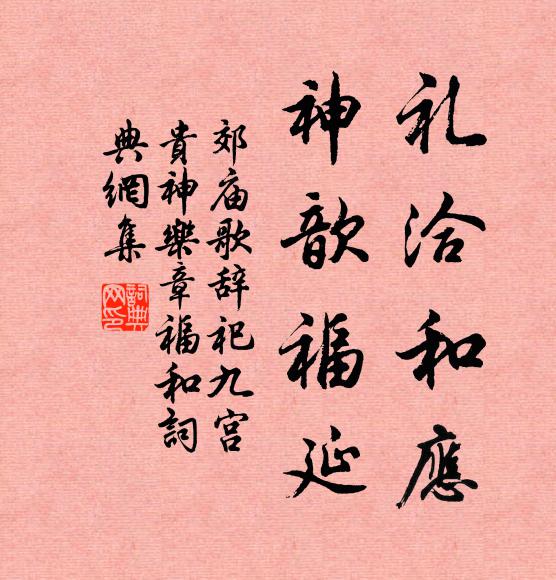 礼洽和應
神歆福延
郊庙歌辞祀九宫
貴神樂章福和詞
典網集
詞典
网印